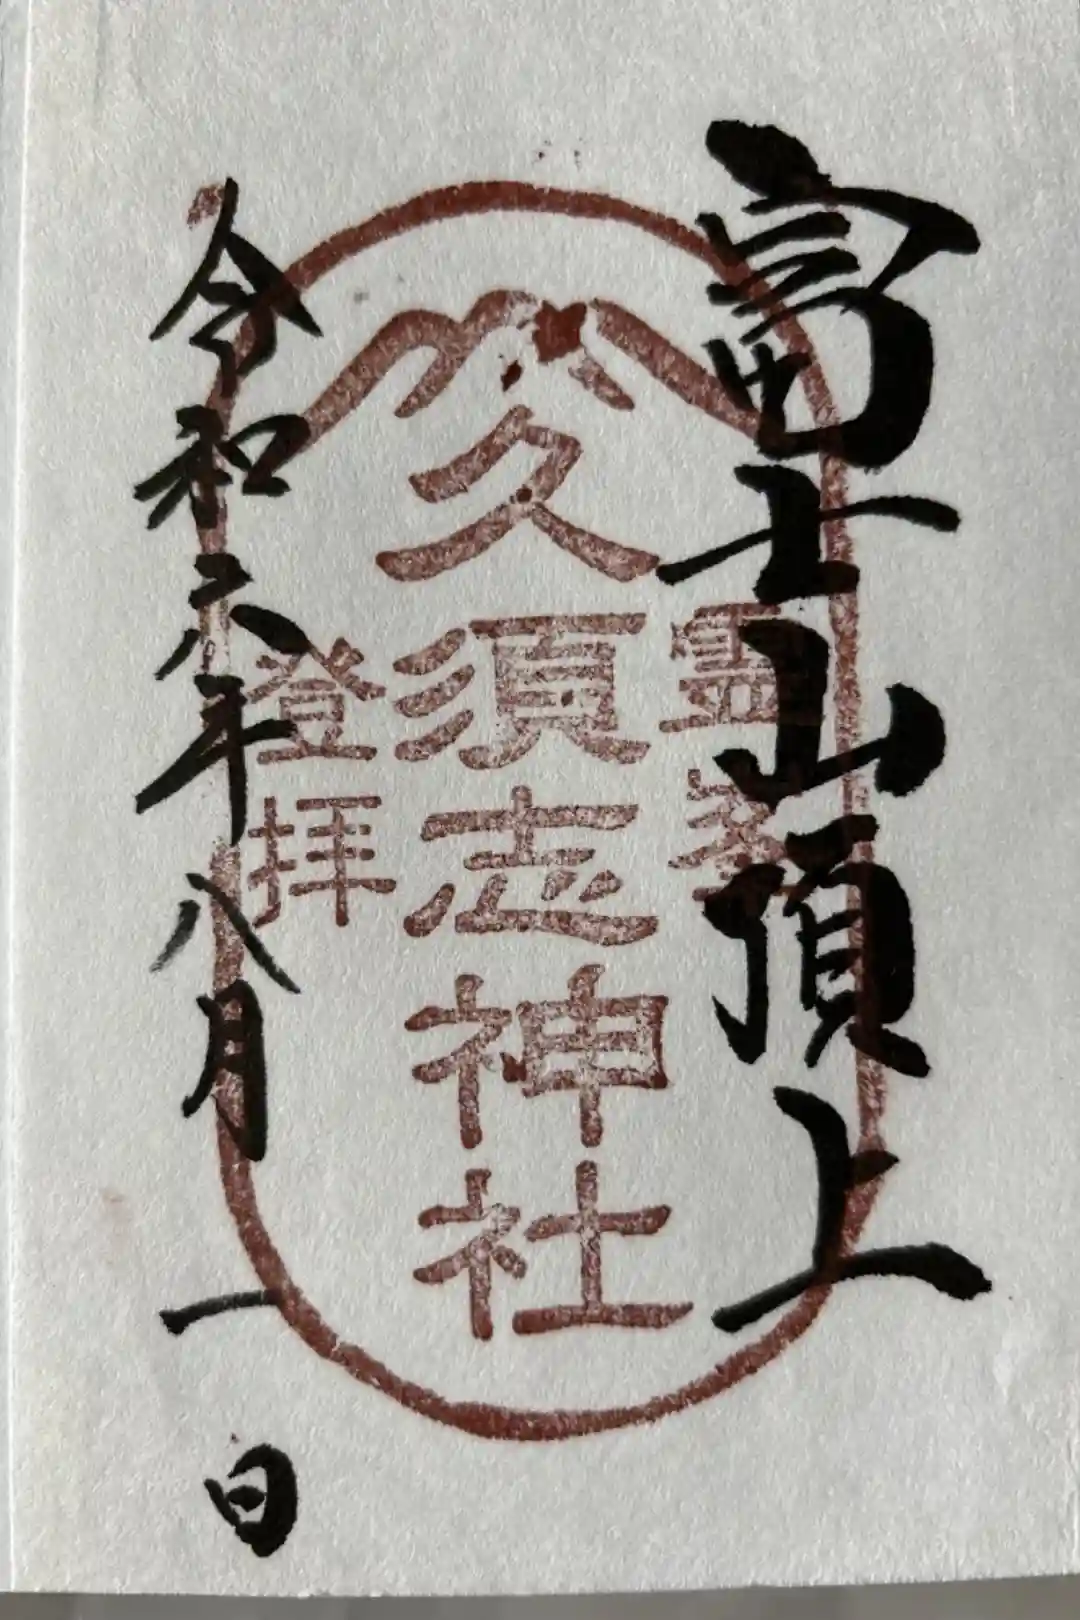 富士山頂上
霊峯
久須志神社
登拝
令和六年八月一日